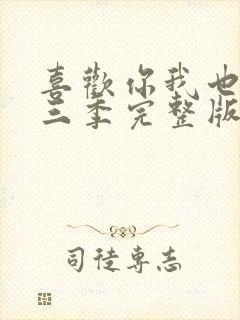 喜歡你我也
三季完整版
司徒專志